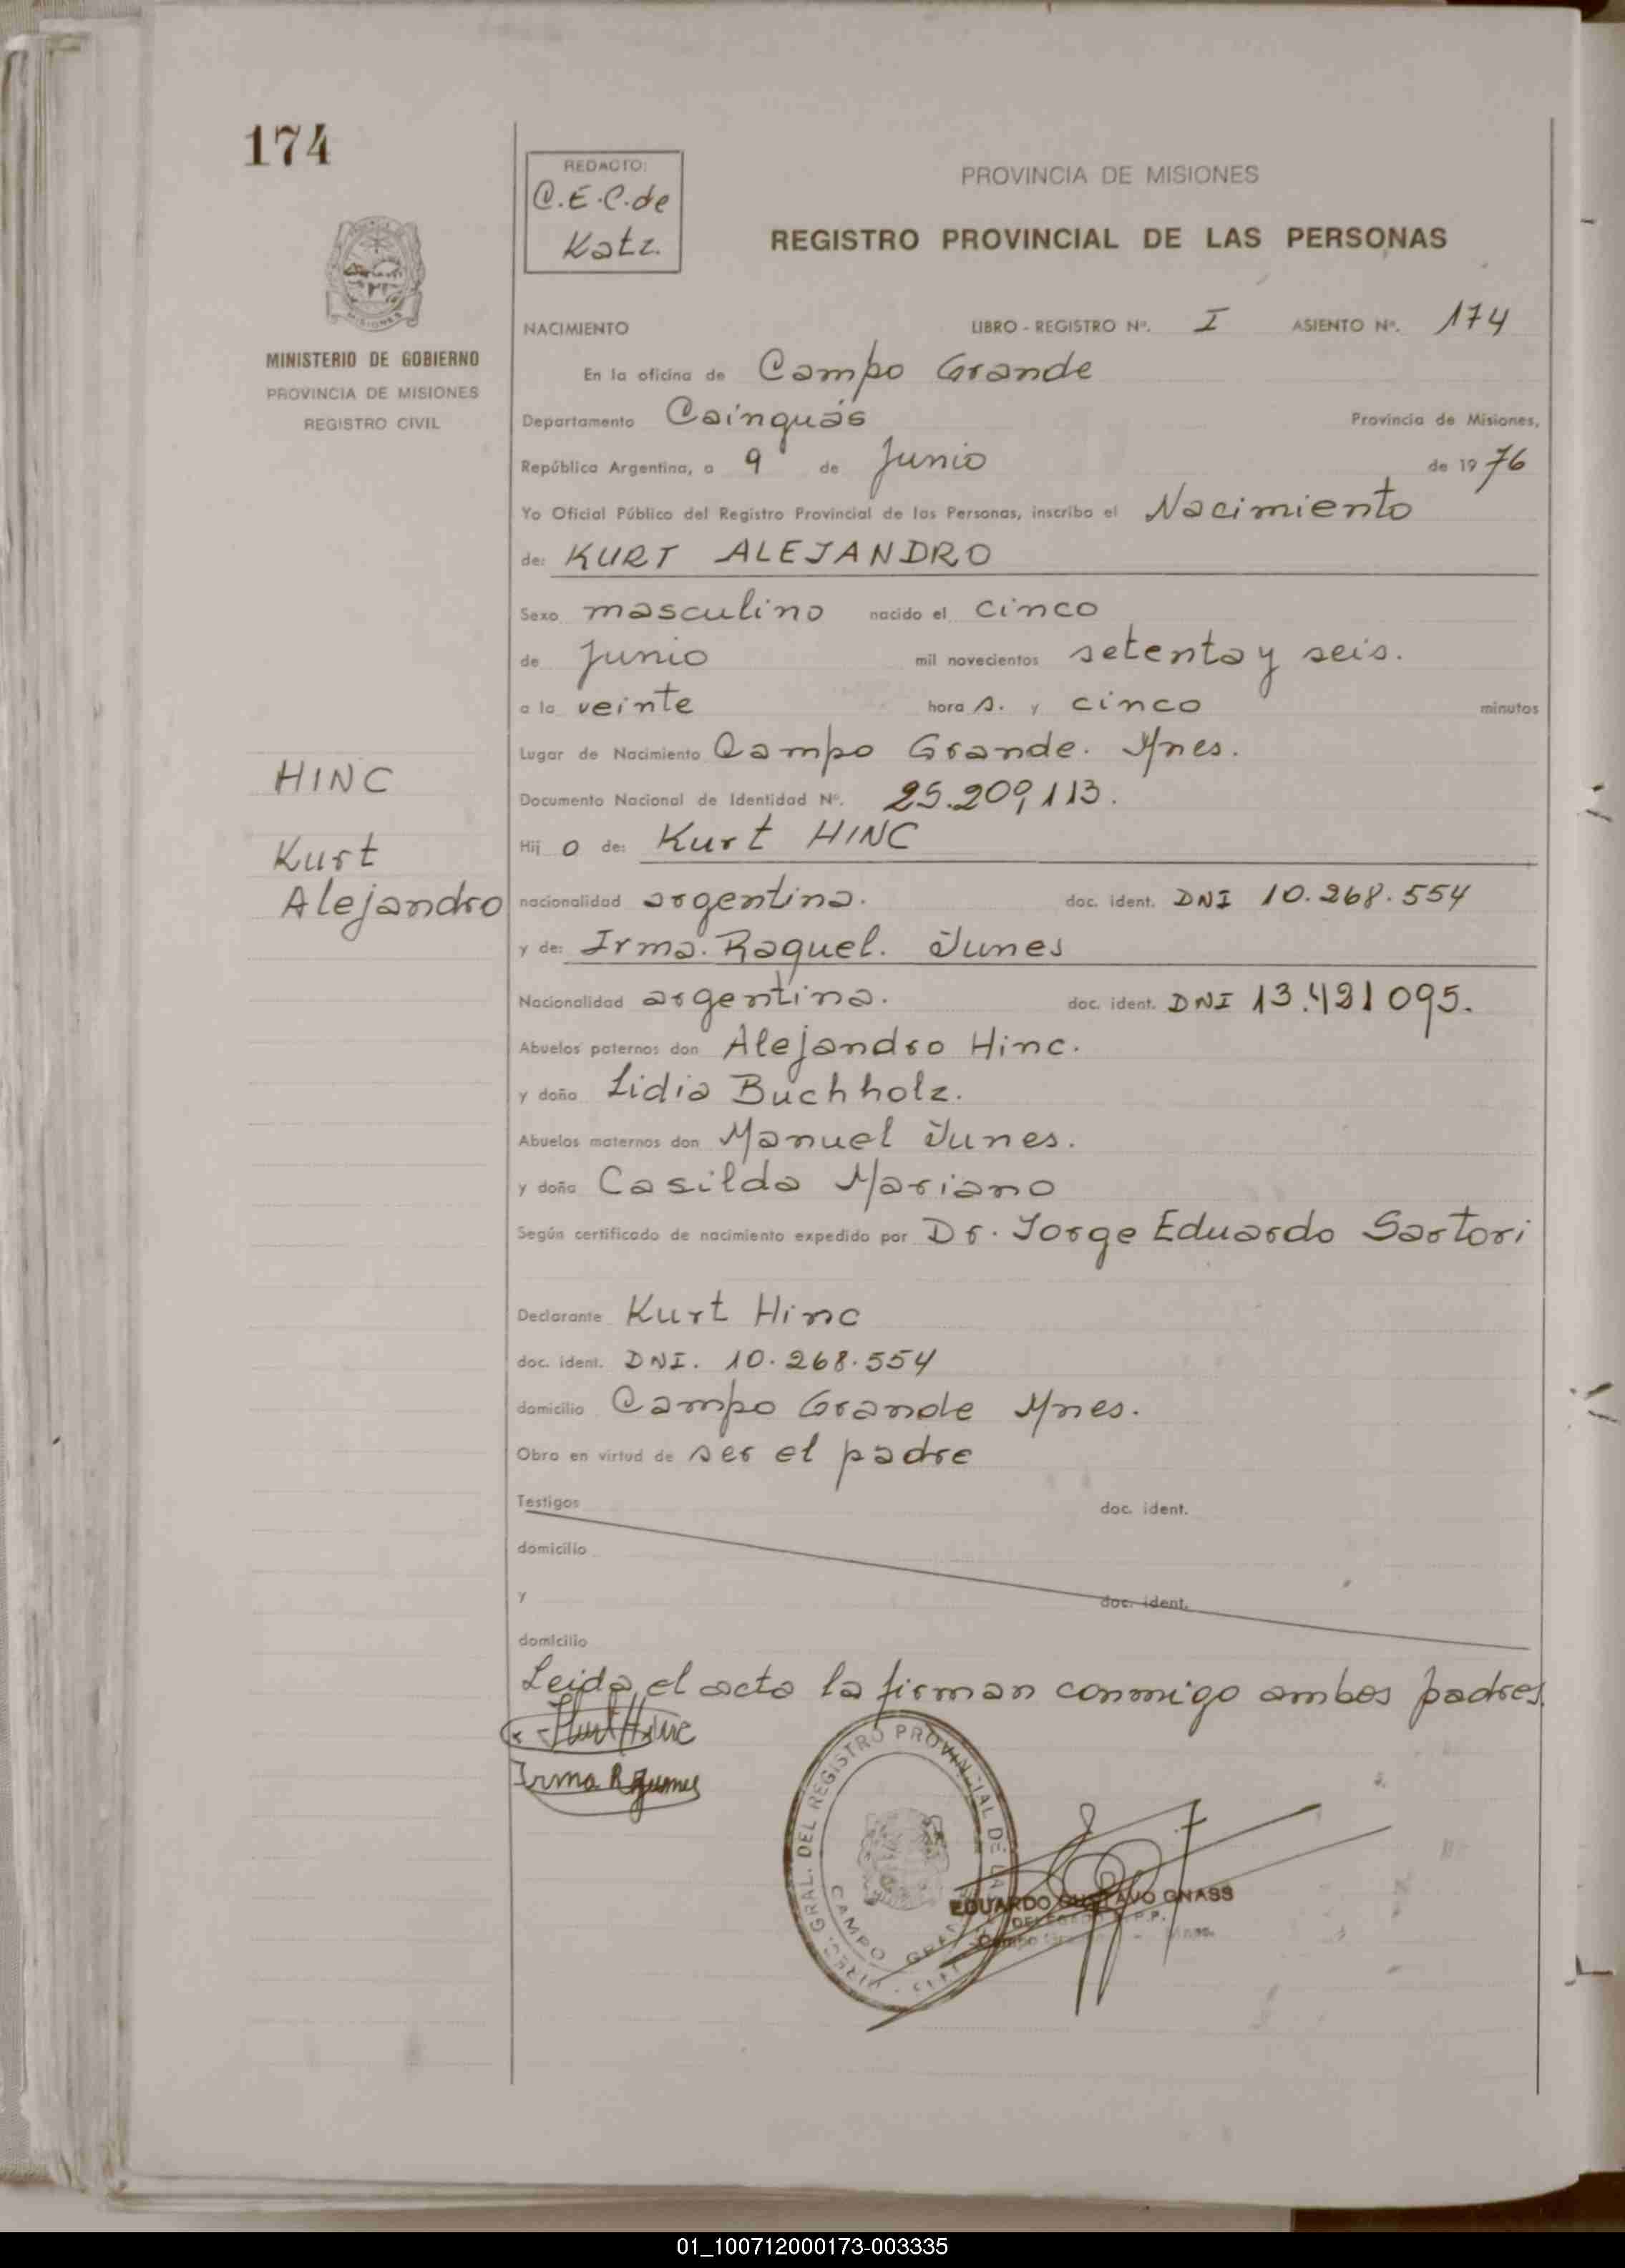 174
REDACTO:
C.E.C. de
Katz.
PROVINCIA DE MISIONES
REGISTRO PROVINCIAL DE LAS PERSONAS
MISIONES
MINISTERIO DE GOBIERNO
PROVINCIA DE MISIONES
REGISTRO CIVIL
NACIMIENTO LIBRO - REGISTRO Nº. I ASIENTO Nº. 174
En la oficina de Campo Grande
Departamento Cainguás Provincia de Misiones,
República Argentina, a 9 de Junio de 19 76
Yo Oficial Público del Registro Provincial de las Personas, inscribo el Nacimiento
de: KURT ALEJANDRO
Sexo masculino nacido el cinco
de Junio mil novecientos setenta y seis.
a la veinte hora s. y cinco minutos
Lugar de Nacimiento Campo Grande. Mnes.
Documento Nacional de Identidad Nº. 25.209,113.
HINC
Kurt
Alejandro
Hij o de: Kurt HINC
nacionalidad argentina. doc. ident. DNI 10.268.554
y de: Irma. Raquel. Junes
Nacionalidad argentina. doc. ident. DNI 13.421095.
Abuelos paternos don Alejandro Hinc.
y doña Lidia Buchholz.
Abuelos maternos don Manuel Junes.
y doña Casilda Mariano
Según certificado de nacimiento expedido por Dr. Jorge Eduardo Sartori
Declarante Kurt Hinc
doc. ident. DNI. 10.268.554
domicilio Campo Grande Mnes.
Obra en virtud de ser el padre
Testigos doc. ident.
domicilio
y doc. ident.
domicilio
Leida el acta la firman conmigo ambos padres.
Kurt Hinc
Irma R Junes
DIREC. GRAL. DEL REGISTRO PROVINCIAL DE LAS
CAMPO GRANDE
EDUARDO GUSTAVO GNASS
01_100712000173-003335